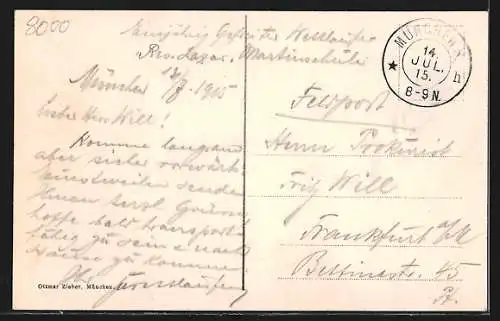 8000
Einjährig Gefreiter
Res. Lazar. Martinschule
München 13/7 1915
Lieber Herr Will!
Komme langsam
aber sicher vorwärts
einstweilen sende
Ihnen herzl. Grüsse
hoffe bald transport-
fähig zu sein u. nach
Hause zu kommen.
Ihr
Ottmar Zieher, München.
MÜNCHEN
14.
JUL.
15.
8-9 N.
Feldpost
Herrn Prokurist
Fritz Will
Frankfurt a/M
Bettinastr. 45